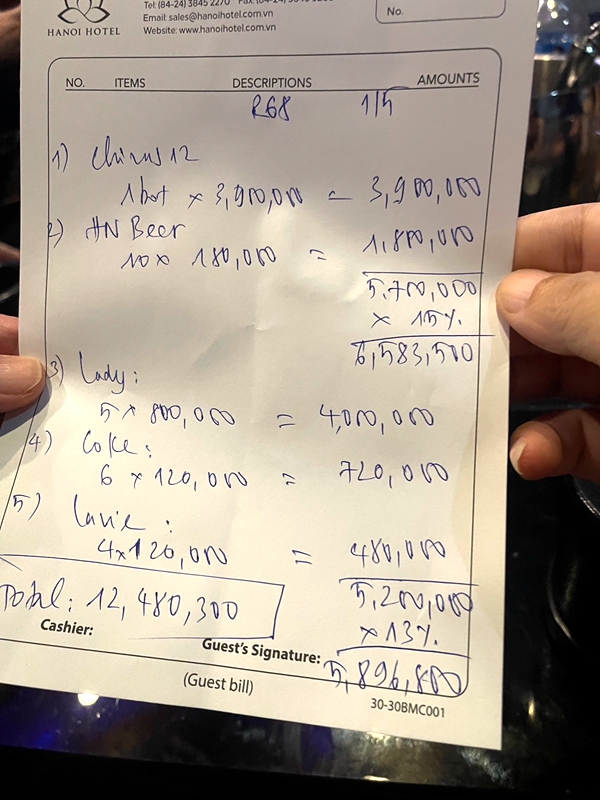 HANOI HOTEL
Tel: (84-24) 3845 2270
Email: sales@hanoihotel.com.vn
Website: www.hanoihotel.com.vn
No.
NO. ITEMS DESCRIPTIONS AMOUNTS
R68 1/5
1) Chivas 12
1 bot x 3,900,000 = 3,900,000
2) HN Beer
10 x 180,000 = 1,800,000
5.700,000
x 15%.
6,583,500
3) Lady:
5 x 800,000 = 4,000,000
4) Coke:
6 x 120,000 = 720,000
5) Lavie:
4 x 120,000 = 480,000
5,200,000
x 13%.
5,896,800
Total: 12,480,300
Cashier:
Guest's Signature:
(Guest bill)
30-30BMC001